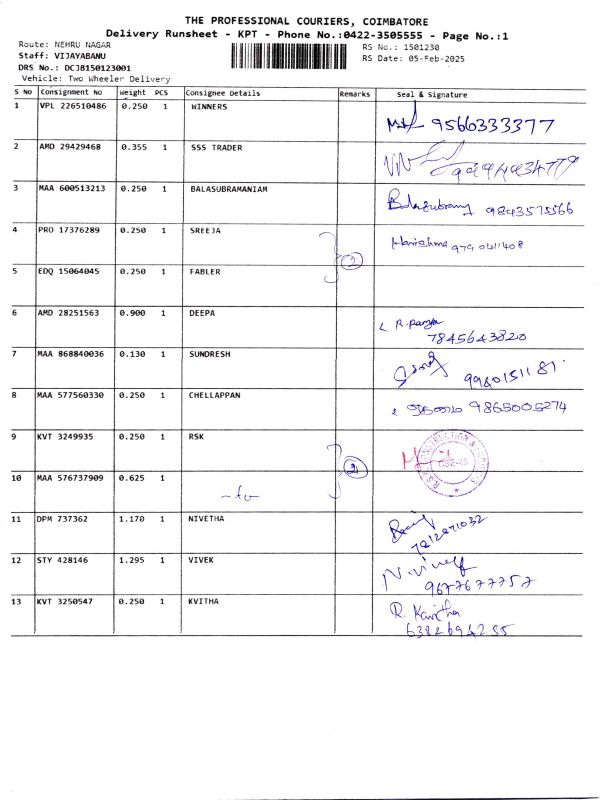 THE PROFESSIONAL COURIERS, COIMBATORE
Delivery Runsheet - KPT - Phone No.:0422-3505555 - Page No.:1
Route: NEHRU NAGAR
RS No.: 1501230
Staff: VIJAYABANU
RS Date: 05-Feb-2025
DRS No.: DCJB150123001
Vehicle: Two Wheeler Delivery
S No Consignment No Weight PCS Consignee Details Remarks Seal & Signature
1 VPL 226510486 0.250 1 WINNERS
9566333377
2 AMD 29429468 0.355 1 SSS TRADER
3 MAA 600513213 0.250 1 BALASUBRAMANIAM
Balasubramy 9843575566
4 PRO 17376289 0.250 1 SREEJA
Harishma 979 0411408
2
5 EDQ 15064045 0.250 1 FABLER
6 AMD 28251563 0.900 1 DEEPA
7845643820
7 MAA 868840036 0.130 1 SUNDRESH
9940151181
8 MAA 577560330 0.250 1 CHELLAPPAN
9865005274
9 KVT 3249935 0.250 1 RSK
2
10 MAA 576737909 0.625 1
11 DPM 737362 1.170 1 NIVETHA
12 STY 428146 1.295 1 VIVEK
N.vivek
9677677757
13 KVT 3250547 0.250 1 KVITHA
R. Kavitha
6382694255